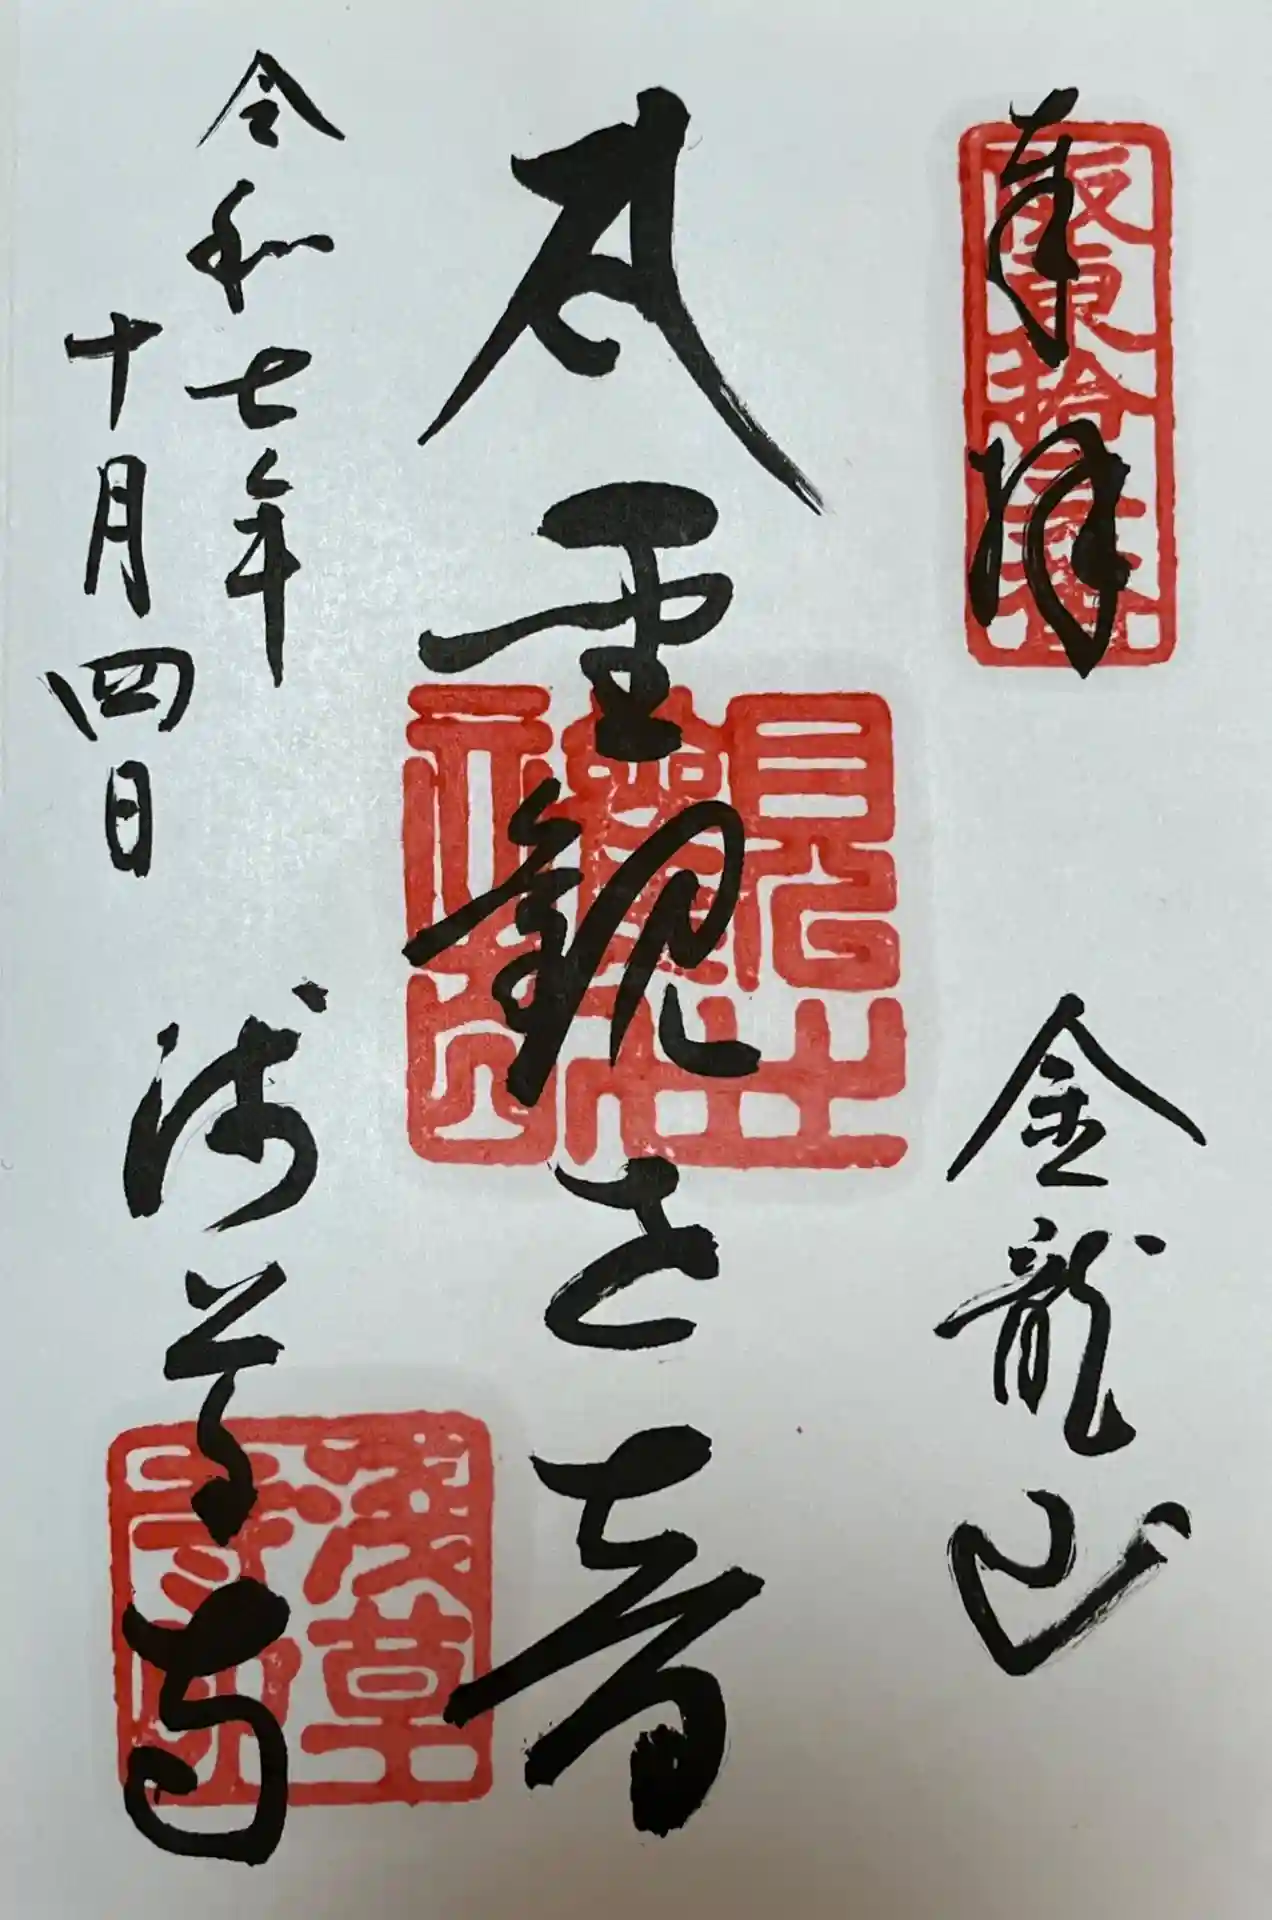 奉拝
坂東拾三番
金龍山
聖観世音
令和七年
十月四日
浅草寺
淺草寺印